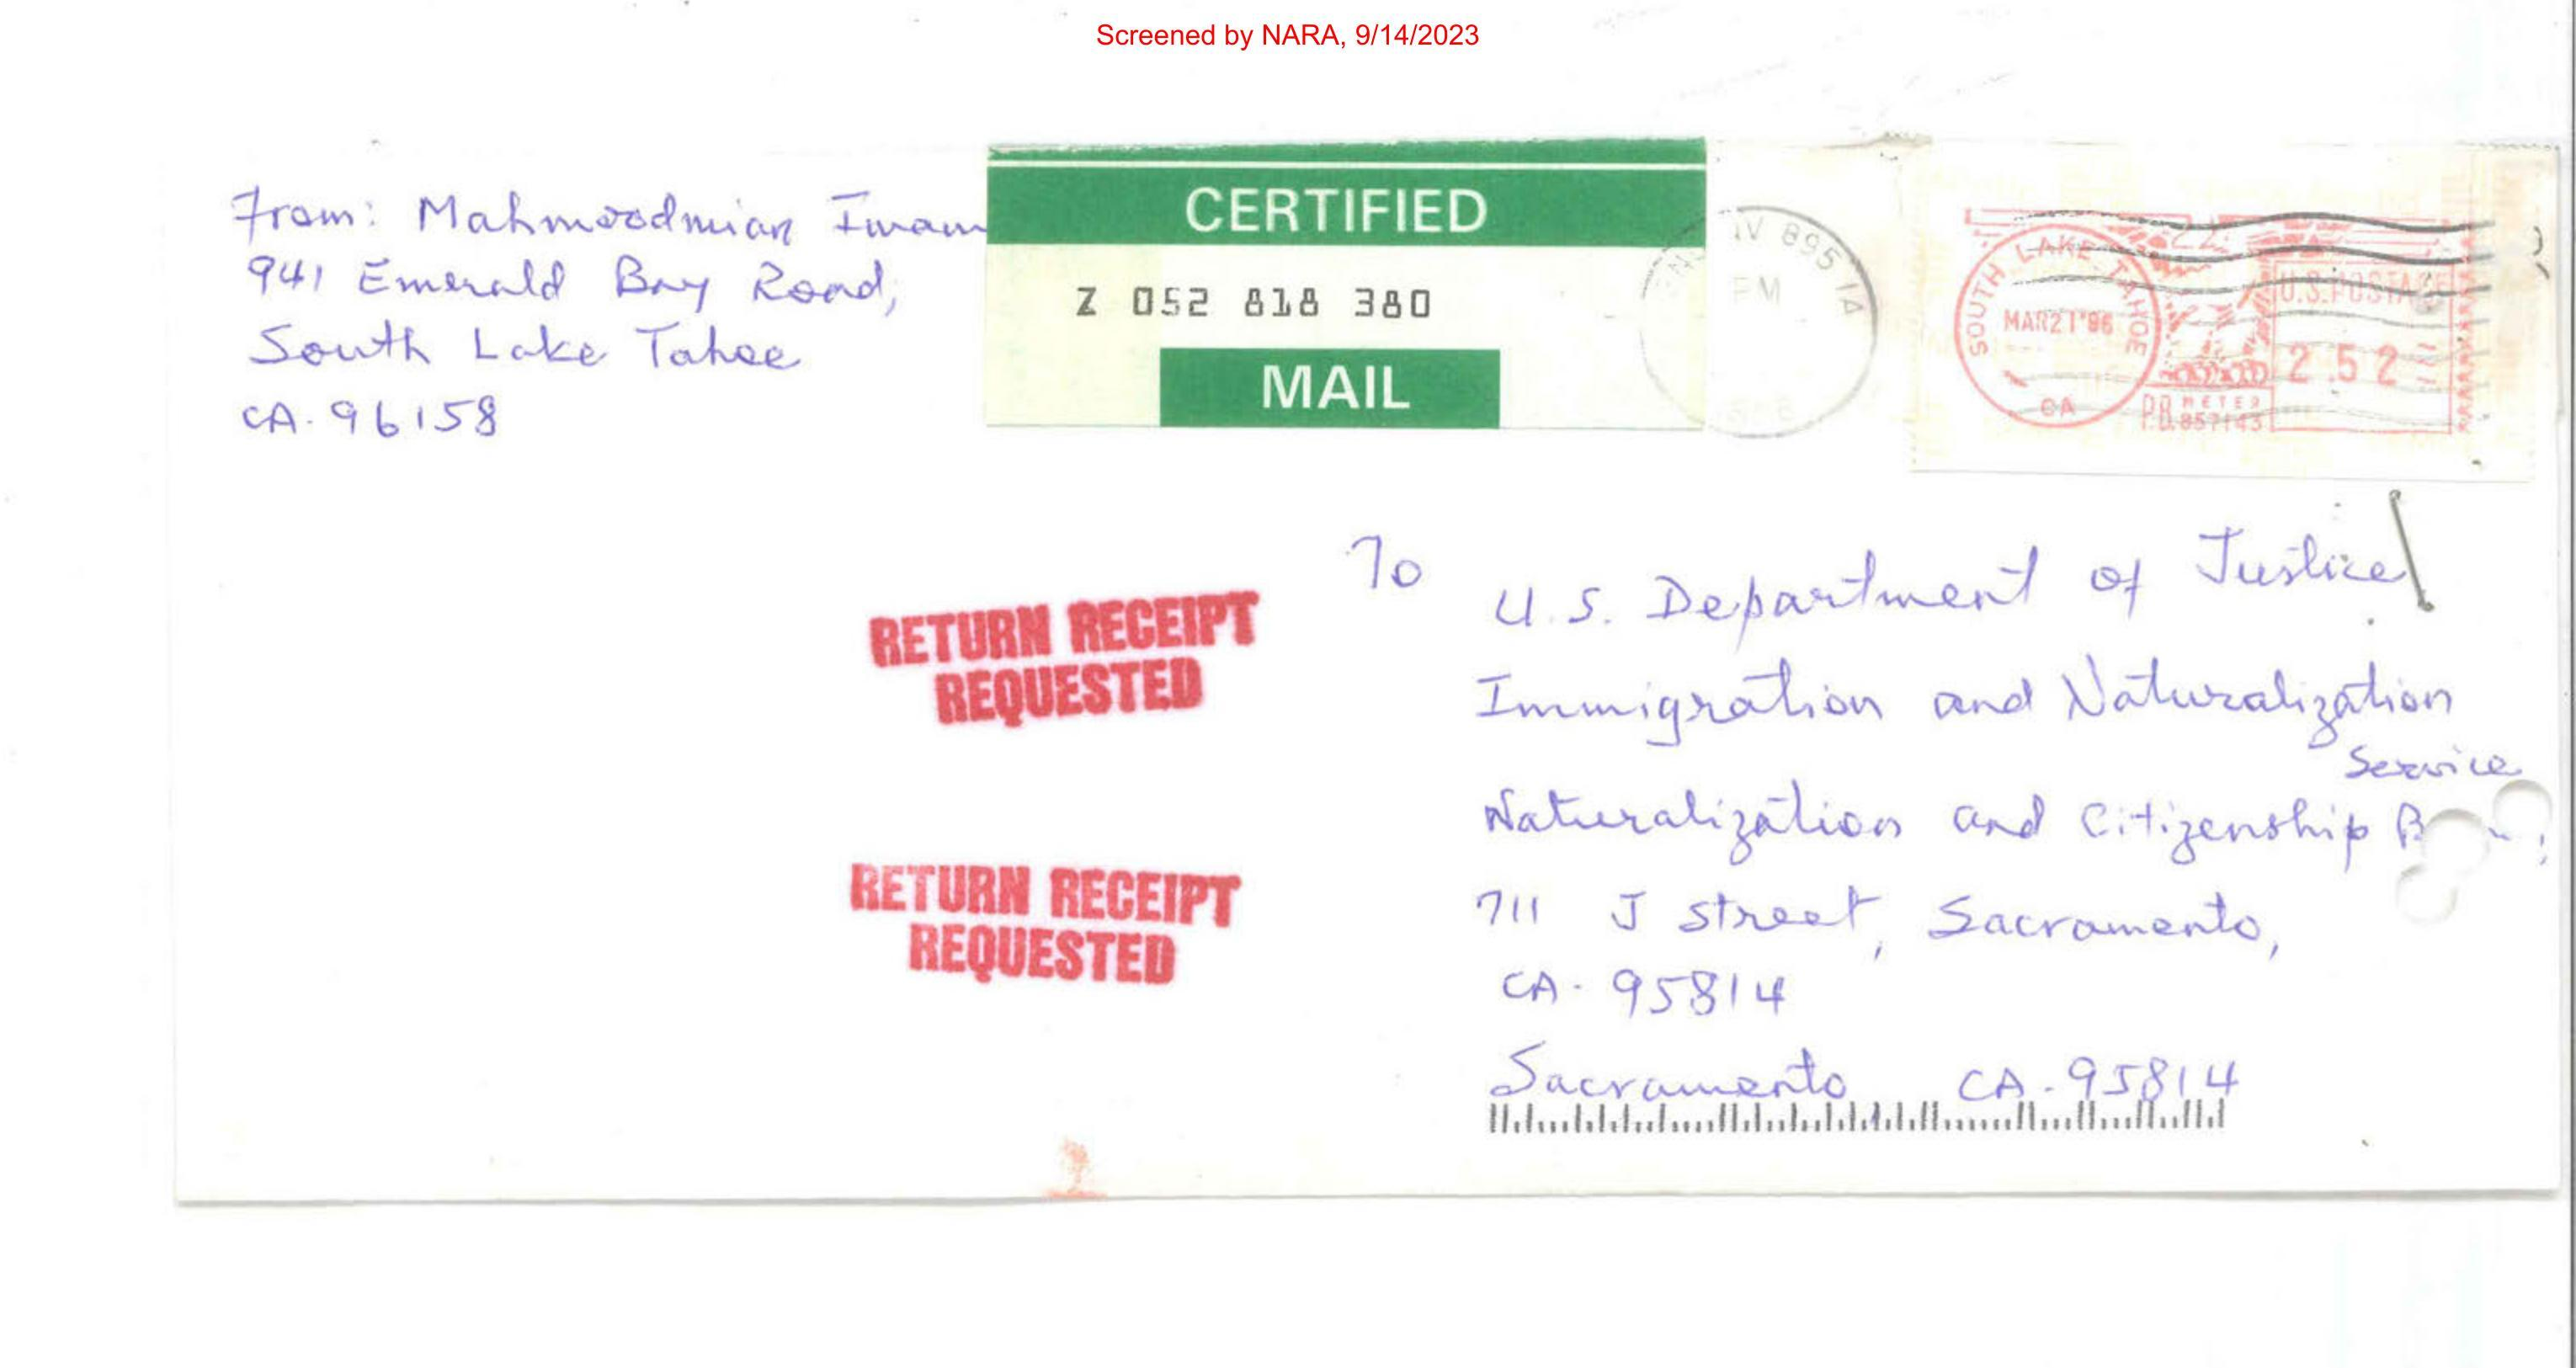 Screened by NARA, 9/14/2023
From: Mahmoodmian Imam
941 Emerald Bay Road,
South Lake Tahoe
CA. 96158
CERTIFIED
Z 052 818 380
MAIL
NV 895 1A
PM
SOUTH LAKE TAHOE
MAR 21 '96
CA
U.S. POSTAGE
2.52
P.B. METER
RETURN RECEIPT
REQUESTED
RETURN RECEIPT
REQUESTED
To
U.S. Department of Justice
Immigration and Naturalization
Service
Naturalization and Citizenship
711 J street, Sacramento,
CA. 95814
Sacramento, CA. 95814